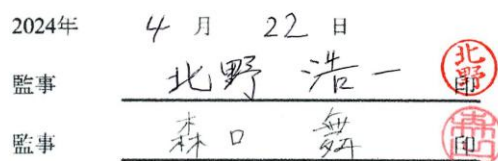 2024年 4月 22日
監事 北野 浩一 印 北野
監事 森口 舞 印